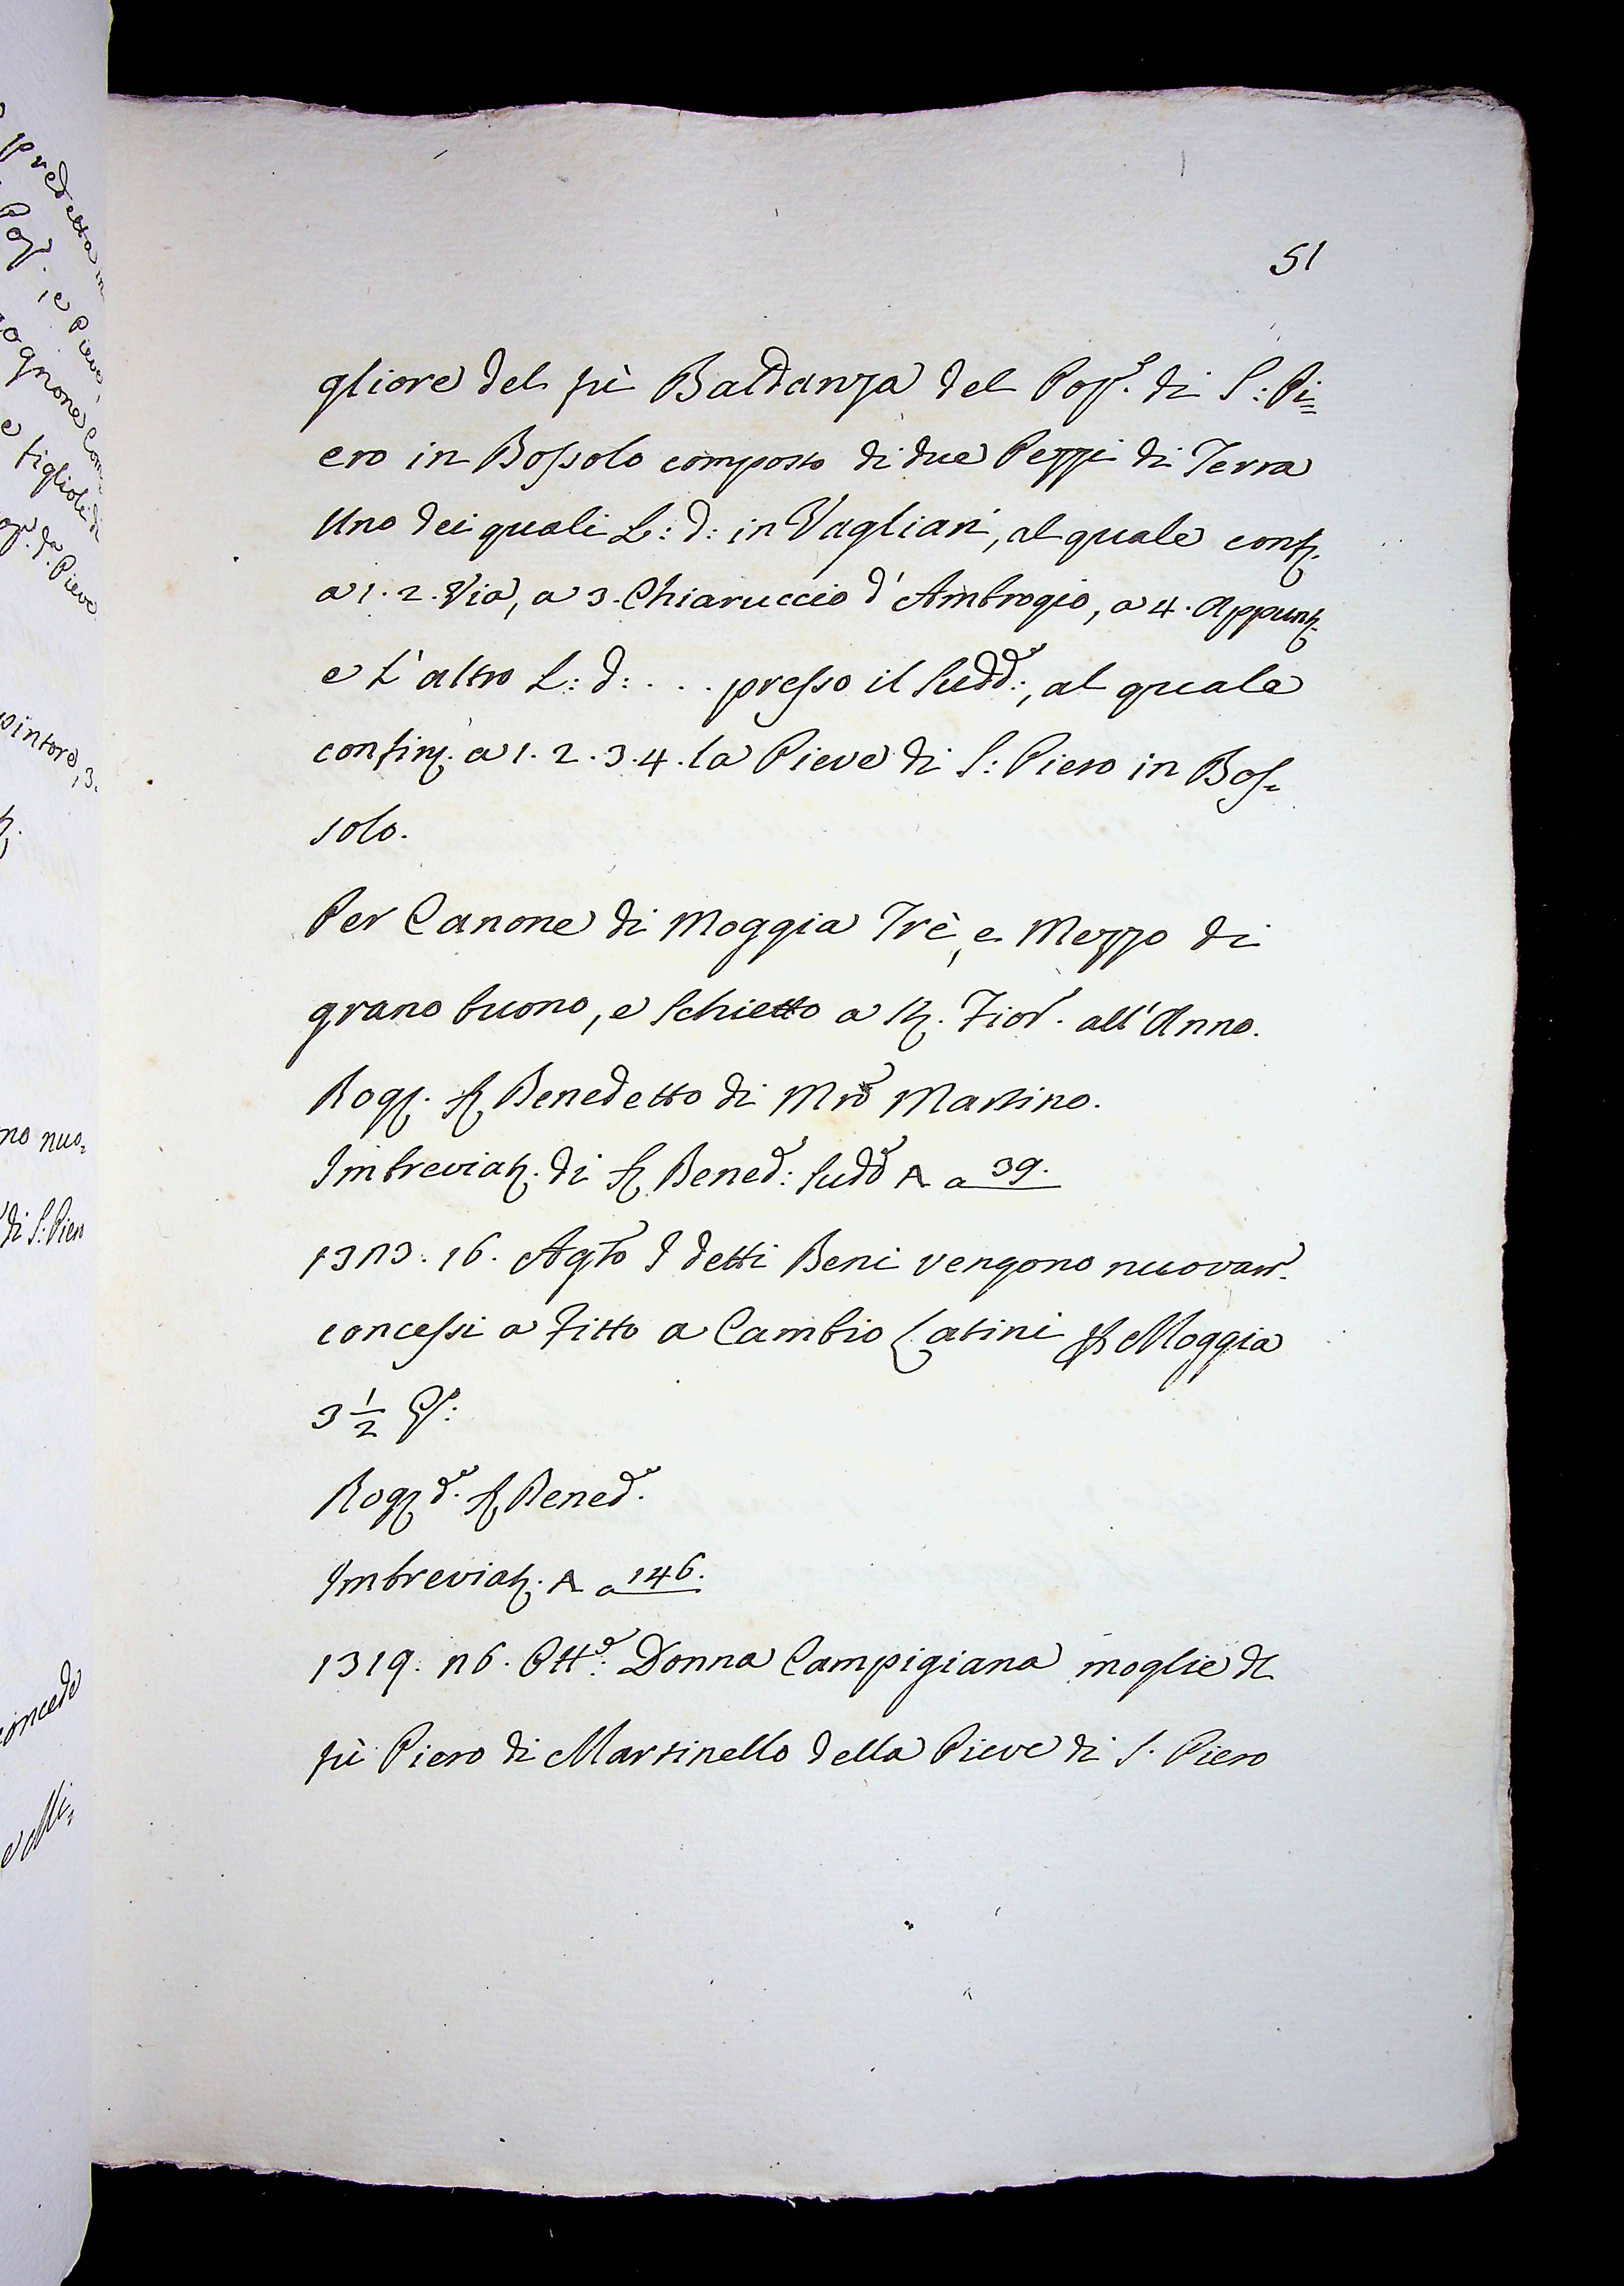 51
gliore del fù Baldanza del Pop.º di S: Pi=
ero in Bossolo composto di due Pezzi di Terra
Uno dei quali L: d: in Vagliari, al quale conf.
a 1. 2. Via, a 3. Chiaruccio d' Ambrogio, a 4. Appunt.
e L'altro L: d: . . . presso il Sudd:º, al quale
confin. a 1. 2. 3. 4. la Pieve di S: Piero in Bos=
solo.
Per Canone di Moggia Trè, e Mezzo di
grano buono, e Schietto a M. Fior. all'Anno.
Rog. S. Benedetto di Mrõ Martino.
Imbreviat. di S. Bened:º Suddº A a 39.
1323. 16. Agto I detti Beni vengono nuovam.
concessi a Fitto a Cambio Latini p Moggia
3 1/2 Gº:
Rog. d.º S. Bened.º
Imbreviat. A a 146.
1319. 26. Ott:e Donna Campigiana moglie dl
fù Piero di Martinello della Pieve di S. Piero
predetta in
Pop.
ie Pieve
ognone Com
e figlioli di
da. Pieve
pintore, 3.
no nuo=
di S: Piero
concede
e Mi=